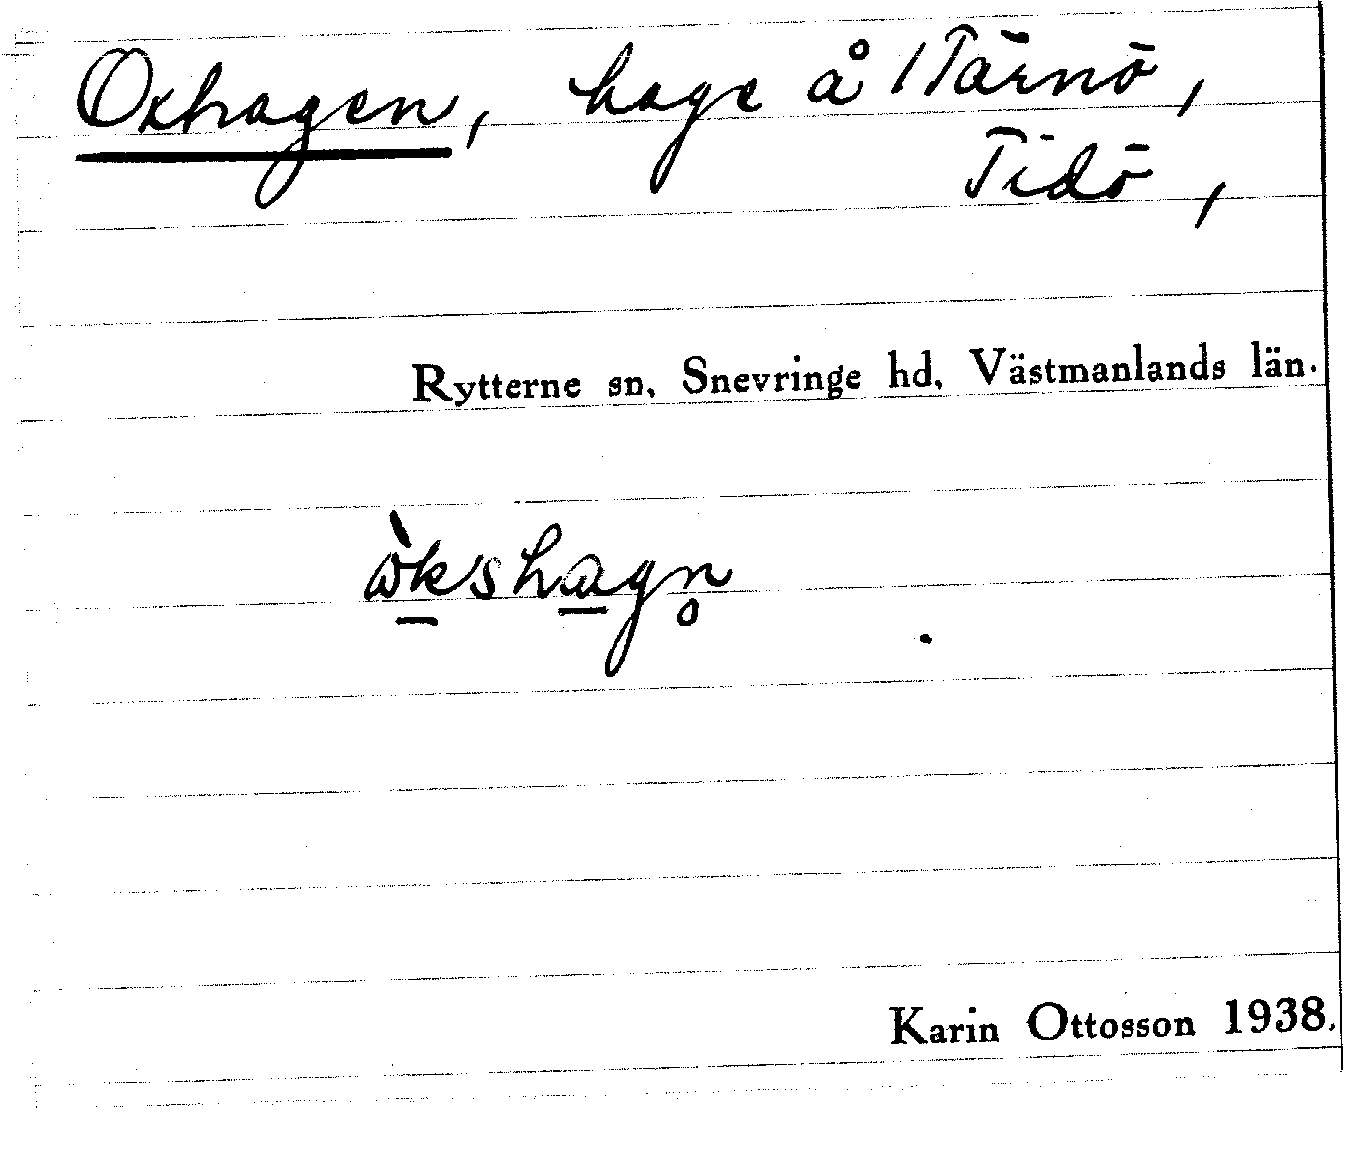 Oxhagen, hage å 1 Tärnö,
Tidö,
Rytterne sn, Snevringe hd, Västmanlands län.
ò̱ksha̱gn̥
Karin Ottosson 1938.